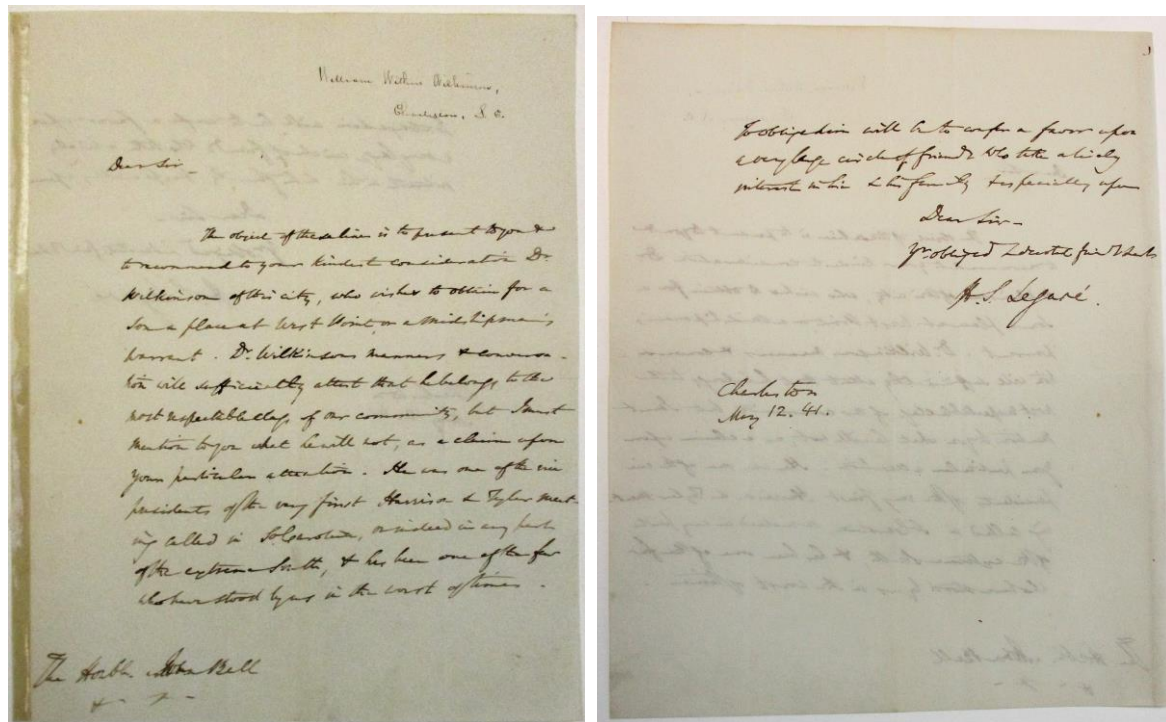 William Wilkins Wilkinson,
Charleston, S. C.
Dear Sir
The object of these lines is to present to you &
to recommend to your kindest consideration Dr.
Wilkinson of this city, who wishes to obtain for a
son a place at West Point, or a midshipman's
warrant. Dr. Wilkinsons manners & conversa-
tion will sufficiently attest that he belongs to the
most respectable class of our community, but I must
mention to you what he will not, as a claim upon
your particular attention. He was one of the vice
presidents of the very first Harrison & Tyler meet-
ing called in So. Carolina, or indeed in any part
of the extreme South, & has been one of the few
who have stood by us in the worst of times.
The Honble. John Bell
To oblige him will be to confer a favor upon
a very large circle of friends who take a lively
interest in him & his family & especially upon
Dear Sir—
Yr obliged & devoted friend & servt
H. S. Legaré.
Charleston
May 12. 41.